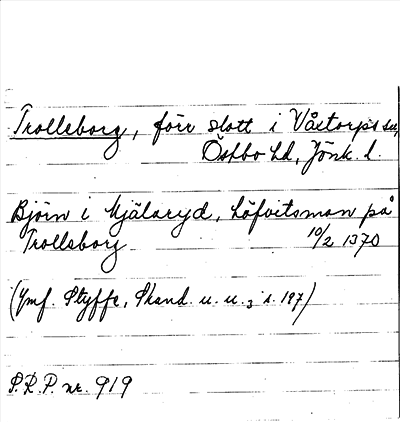 Trolleborg, förr slott i Våxtorps sn,
Östbo hd, Jönk. l.
Björn i Mjälaryd, häfvitsman på
Trollaborg 10/2 1370
(Jmf. Styffe, Skand. u. u. 3 s. 197)
S.R.P. nr. 919